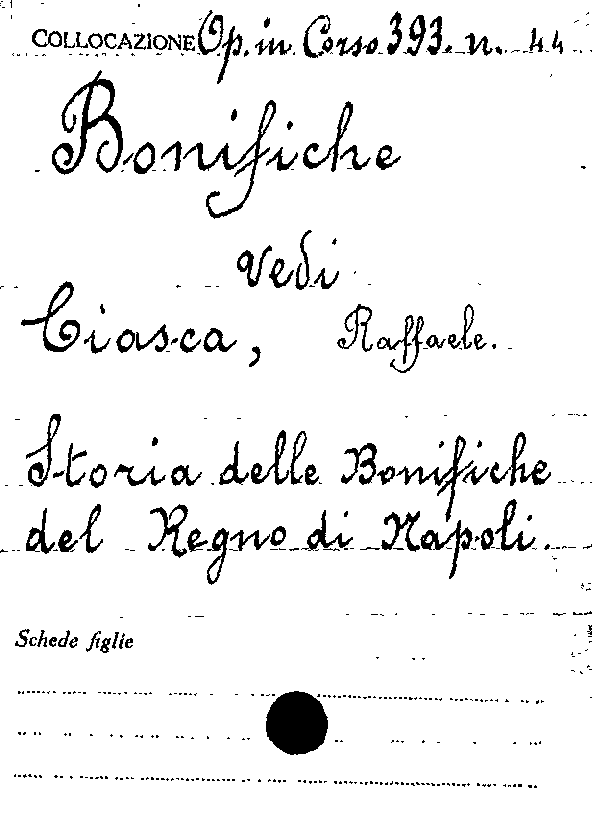 COLLOCAZIONE Op. in Corso 393. n. 44
Bonifiche
vedi
Ciasca, Raffaele.
Storia delle Bonifiche
del Regno di Napoli.
Schede figlie